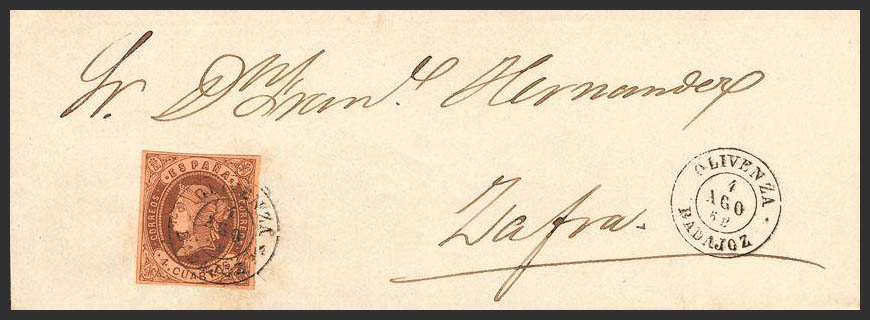 Sr. Dn Fran.co Hernandez
Zafra.
ESPAÑA
CORREOS
CORREOS
4 CUARTOS
OLIVENZA
1
AGO
62
BADAJOZ